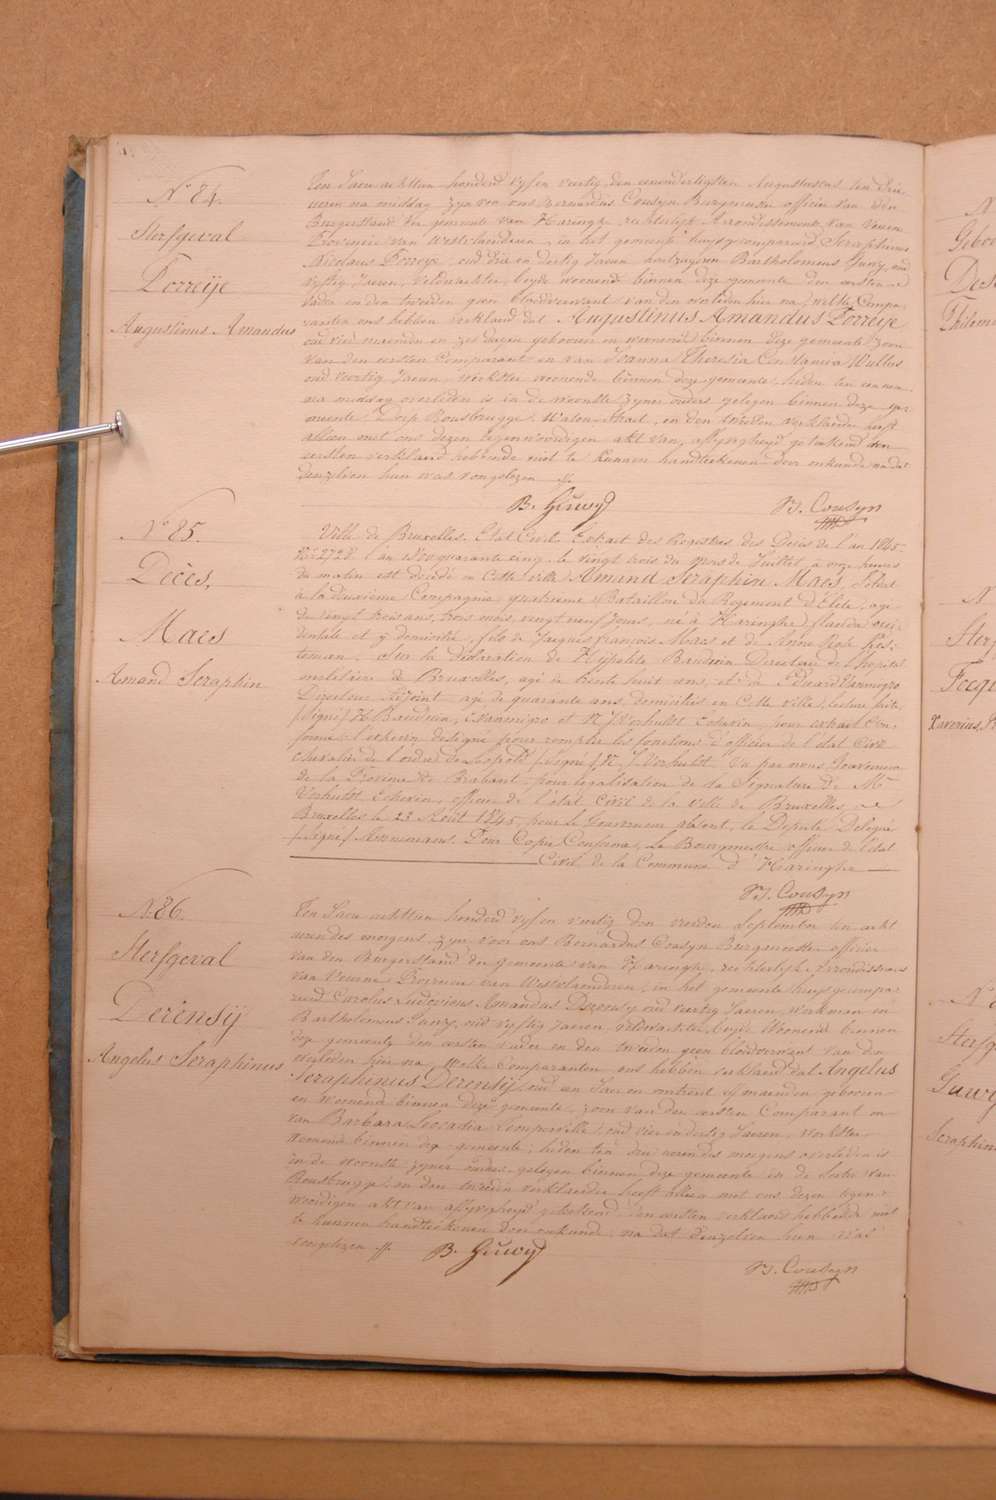 N° 84.
Sterfgeval
Torreije
Augustinus Amandus
Ten Jaere achttien honderd vyf en veertig den eenendertigsten Augustus ten drie
uren na middag zyn voor ons Bernardus Cousyn Burgmeester officier van den
Burgerstand der gemeente van Haringhe, rechterlyk Arrondissement van Veurne
Provincie van Westvlaenderen, in het gemeente huys gecompareerd Seraphinus
Nicolaus Torreije, oud drie en dertig Jaeren houtzager en Bartholomeus Guwy, oud
vyftig Jaeren, veldwachter, beyde woonende binnen deze gemeente den eersten
vader en den tweeden geen bloedverwant van den overleden hier na, welke Compa-
ranten ons hebben verklaerd dat Augustinus Amandus Torreije
oud vier maenden en zes dagen geboren en woonende binnen deze gemeente zoon
van den eersten Comparant en van Joanna Theresia Constancia Wullus
oud veertig Jaeren, werkster woonende binnen deze gemeente, heden ten een uren
na middag overleden is in de woonste zyner ouders gelegen binnen deze ge-
meente Dorp Rousbrugge Waten-straet, en den tweeden verklaerder heeft
alleen met ons dezen tegenwoordigen akt van aflyvigheyd geteekend den
eersten verklaerd hebbende niet te kunnen handteekenen door onkunde na dat
denzelven hun was voorgelezen
B. Guwy
B. Cousyn
N° 85.
Décès,
Maes
Amand Seraphin
Ville de Bruxelles. Etat Civil. Extrait des Registres des Décès de l'an 1845
N° 2728 l'an 1800 quarante cinq, le vingt trois du mois de Juillet, à onze heures
du matin est décédé en cette ville Amand Seraphin Maes, Soldat
à la deuxième Compagnie quatrieme Bataillon du Regiment d'Elite, agé
de vingt trois ans, trois mois, vingt neuf jours, né à Haringhe, flandre occi-
dentale et y domicilié, fils de Jacques francois Maes et de Anne Rose
Sur la déclaration de Hippolite Baudouin Directeur de l'hopital
militaire de Bruxelles, agé de trente huit ans, et de Eduard
Directeur Adjoint agé de quarante ans, domiciliés en Cette ville, lecture faite
/signé/ H. Baudouin, et N. J. Verhulst Echevin pour extrait Con-
forme: l'echevin designé pour remplir les fonctions d'officier de l'etat Civil
chevalier de l'ordre de Leopold /signé/ N. J. Verhulst. Vu par nous Gouverneur
de la Province de Brabant pour legalisation de la Signature de Mr
Verhulst Echevin, officier de l'état Civil de la ville de Bruxelles,
Bruxelles le 23 Août 1845, pour le Gouverneur absent, le Deputé Delegué
/signé/ Pour Copie Conforme, Le Bourgmestre officier de l'état
Civil de la Commune d'Haringhe
B. Cousyn
N° 86.
Sterfgeval
Derensij
Angelus Seraphinus
Ten Jaere achttien honderd vyf en veertig den vierden September ten acht
uren des morgens zyn voor ons Bernardus Cousyn Burgmeester officier
van den Burgerstand der gemeente van Haringhe, rechterlyk Arrondissement
van Veurne Provincie van Westvlaenderen, in het gemeente huys gecompa-
reerd Carolus Ludovicus Amandus Derensy oud veertig Jaeren, Werkman en
Bartholomeus Guwy, oud vyftig Jaeren Veldwachter, beyde Woonende binnen
deze gemeente den eersten vader en den tweeden geen bloedverwant van den
overleden hier na, welke Comparanten ons hebben verklaerd dat Angelus
Seraphinus Derensij, oud een Jaer en omtrent vyf maenden geboren
en woonend binnen deze gemeente, zoon van den eersten Comparant en
van Barbara Leocadia oud vier en dertig Jaeren, werkster
woonend binnen deze gemeente, heden ten drie uren des morgens overleden is
in de woonste zyner ouders gelegen binnen deze gemeente in de van
Rousbrugge, en den tweeden verklaerder heeft alleen met ons dezen tegen-
woordigen akt van aflyvigheyd geteekend den eersten verklaerd hebbende niet
te kunnen handteekenen door onkunde, na dat denzelven hun was
voorgelezen
B. Guwy
B. Cousyn
N
Gebo
Des
Philom
N
Sterf
Focq
Xaverius, P
N° 8
Sterfg
Guwy
Seraphin